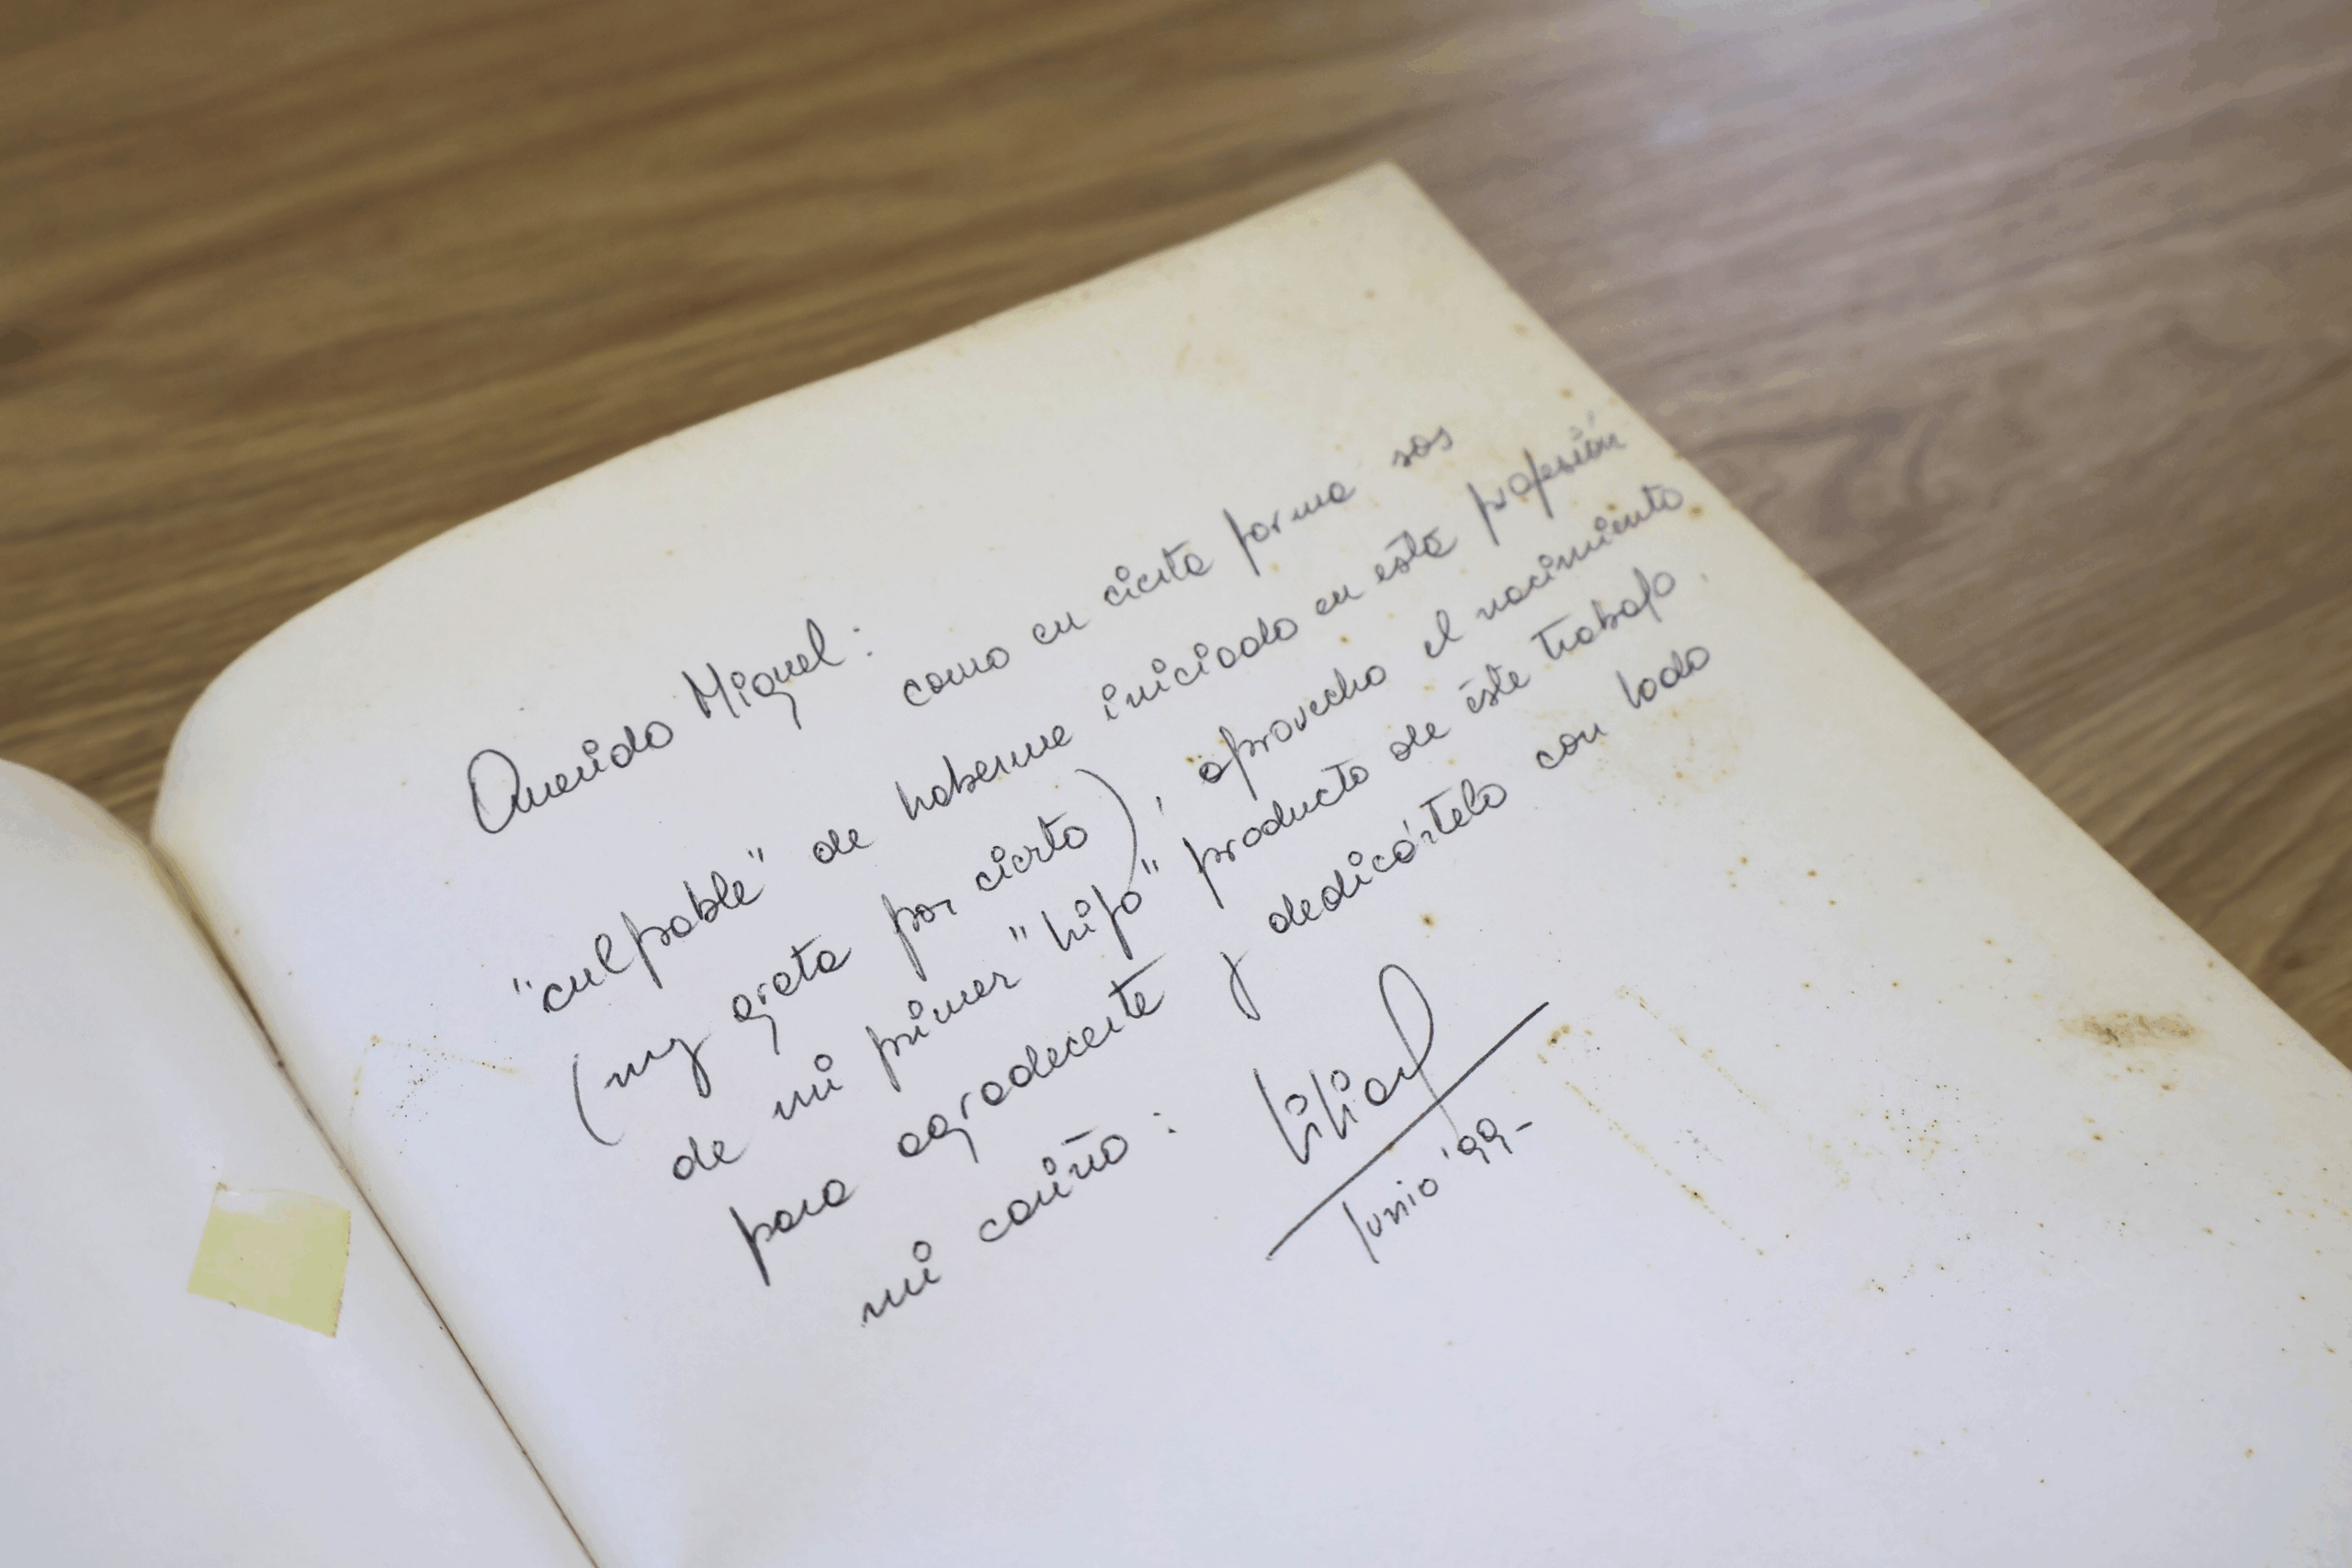 Querido Miguel:
como en cierta forma sos
"culpable" de haberme iniciado en esta profesión
(muy grata por cierto), aprovecho el nacimiento
de mi primer "hijo" producto de éste trabajo,
para agradecerte y dedicártelo con todo
mi cariño:
Lilian
Junio '99-